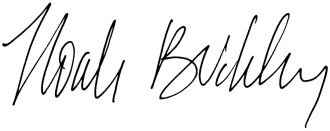 Noah Buckley